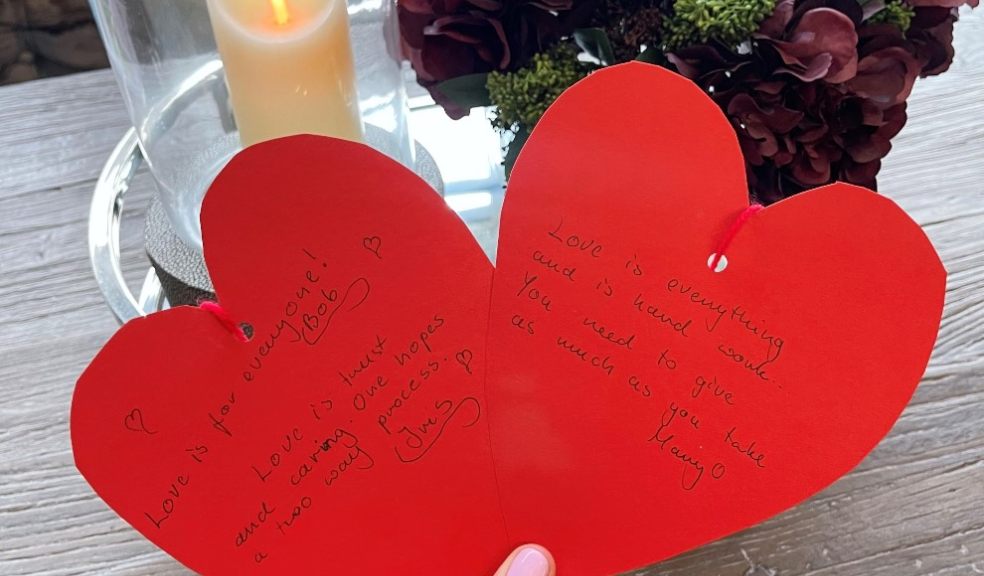 Love is for everyone!
Bob
Love is trust
and caring. One hopes
a two way process.
Iris
Love is everything
and is hard work..
You need to give
as much as you take
Mary O